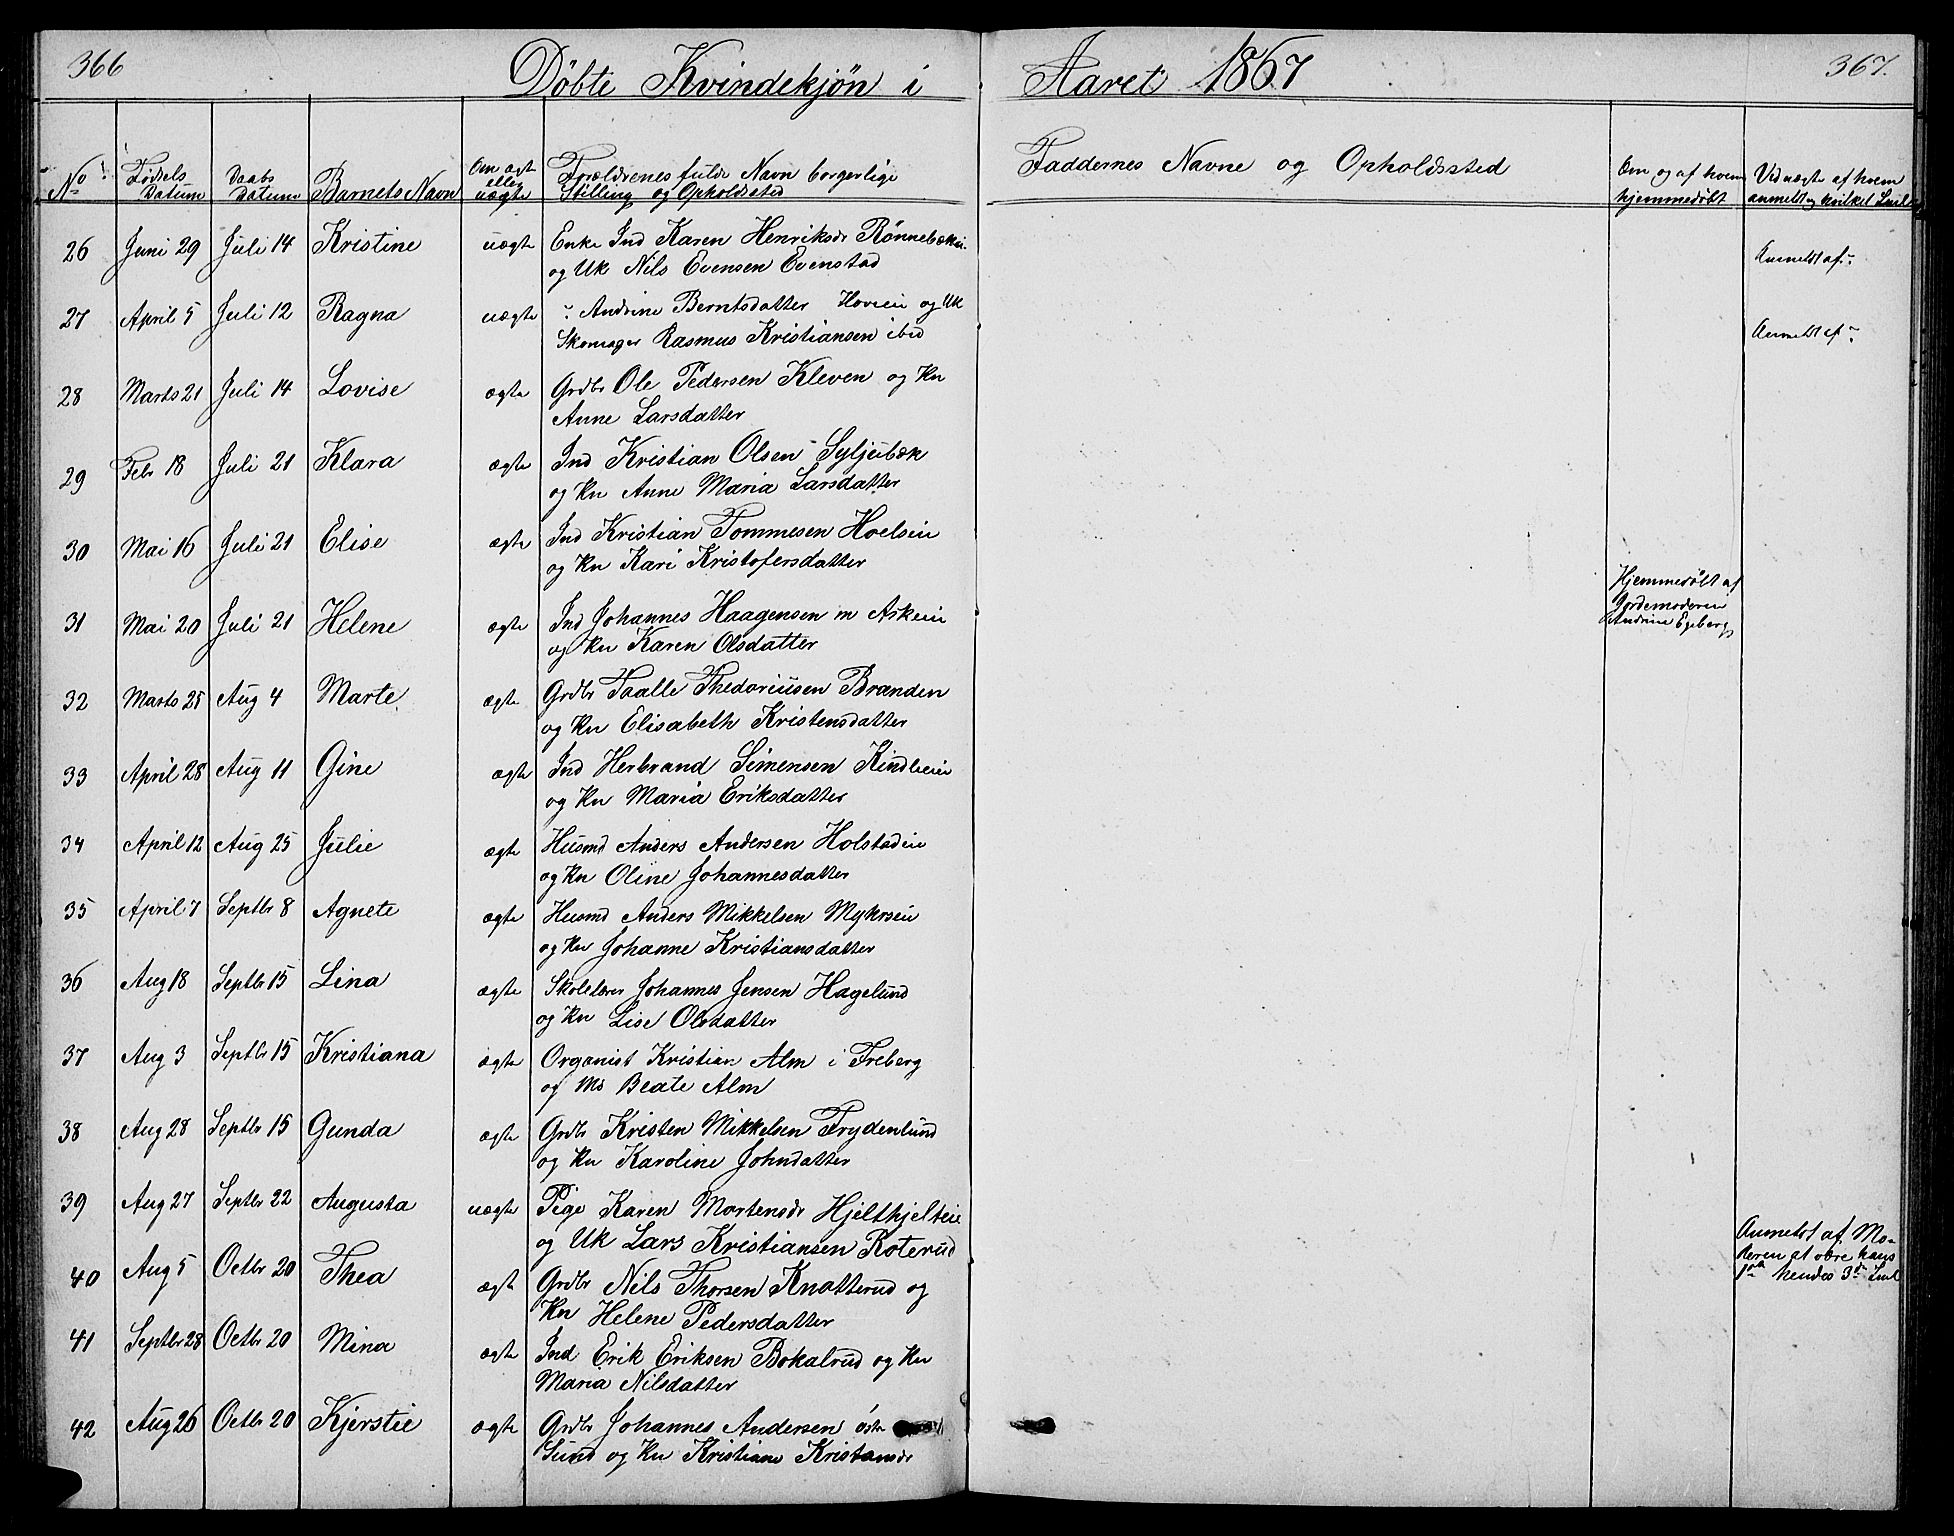 366
Døbte Kvindekjøn i Aaret 1867
367.
No Fødsels Datum Daabs Datum Barnets Navn Om ægte eller uægte Forældrenes fulde Navn borgerlige Stilling og Opholdssted Faddernes Navne og Opholdssted Om og af hvem hjemmedøbt Ved uægte af hvem anmeldt og hvilket Leiel
26 Juni 29 Juli 14 Kristine uægte Enke Ind Karen Henriksdr Rønnebækei. Anmeldt af:
og Uk Nils Evensen Evenstad
27 April 5 Juli 12 Ragna uægte Andrine Berntsdatter Hoveie og Uk Anmeldt af
Skomager Rasmus Kristiansen ibid
28 Marts 21 Juli 14 Lovise ægte Grdbr Ole Pedersen Kleven og Kn
Anne Larsdatter
29 Febr 18 Juli 21 Klara ægte Ind Kristian Olsen Syljubæk
og Kn Anne Maria Larsdatter
30 Mai 16 Juli 21 Elise ægte Ind Kristian Tommesen Hoelseie
og Kn Kari Kristofersdatter
31 Mai 20 Juli 21 Helene ægte Ind Johannes Haagensen m Askeie
og Kn Karen Olsdatter
Hjemmedøbt af
Jordemoderen
Andrine Egeberg
32 Marts 25 Aug 4 Marte ægte Grdbr Taalle Thedoriusen Branden
og Kn Elisabeth Kristensdatter
33 April 28 Aug 11 Gine ægte Ind Herbrand Simensen Kindlieie
og Kn Maria Eriksdatter
34 April 12 Aug 25 Julie ægte Husmd Anders Andersen Holstadeie
og Kn Oline Johannesdatter
35 April 7 Septbr 8 Agnete ægte Husmd Anders Mikkelsen Myhrseie
og Kn Johanne Kristiansdatter
36 Aug 18 Septbr 15 Lina ægte Skolelærer Johannes Jensen Hagelund
og Kn Lise Olsdatter
37 Aug 3 Septbr 15 Kristiana ægte Organist Kristian Alm i Freberg
og Ms Beate Alm
38 Aug 28 Septbr 15 Gunda ægte Grdbr Kristen Mikkelsen Frydenlund
og Kn Karoline Johndatter
39 Aug 27 Septbr 22 Augusta uægte Pige Karen Mortensdr Hjelthjelteie
og Uk Lars Kristiansen Roterud
Anmeldt af Mo-
deren at være hans
1ste hendes 3die Leiel
40 Aug 5 Octbr 20 Thea ægte Grdbr Nils Thorsen Knatterud og
Kn Helene Pedersdatter
41 Septbr 28 Octbr 20 Mina ægte Ind Erik Eriksen Bokalrud og Kn
Maria Nilsdatter
42 Aug 26 Octbr 20 Kjerstie ægte Grdbr Johannes Andersen östre
Sund og Kn Kristiane Kristansdr